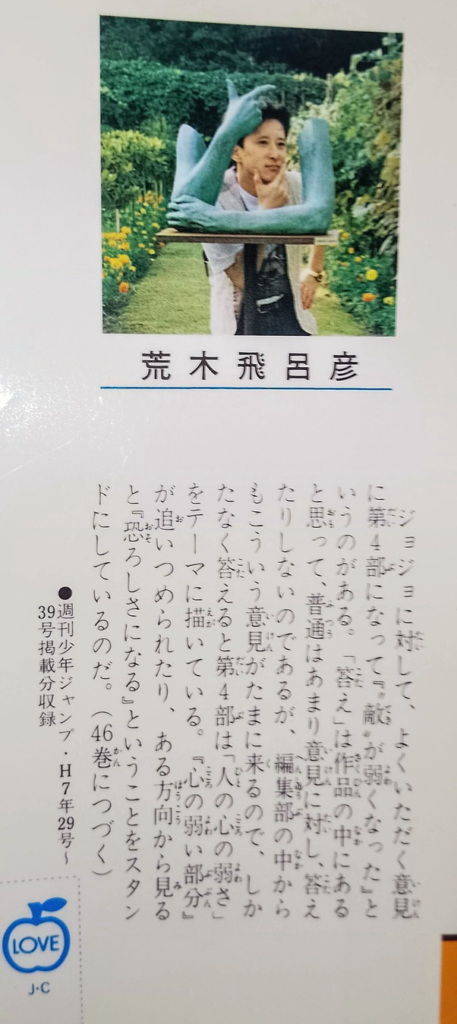 荒木飛呂彦
ジョジョに対して、よくいただく意見
に第4部になって『“敵”が弱くなった』と
いうのがある。「答え」は作品の中にある
と思って、普通はあまり意見に対し、答え
たりしないのであるが、編集部の中から
もこういう意見がたまに来るので、しか
たなく答えると第4部は「人の心の弱さ」
をテーマに描いている。『心の弱い部分』
が追いつめられたり、ある方向から見る
と『恐ろしさになる』ということをスタン
ドにしているのだ。(46巻につづく)
●週刊少年ジャンプ・H7年29号~
39号掲載分収録
LOVE
J・C